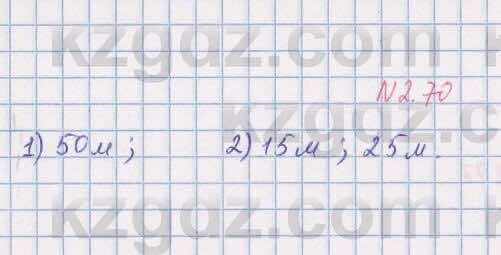 kzgdz.com
N 2.70
kzgdz.com
1) 50м; 2) 15м; 25м.
kzgdz.com